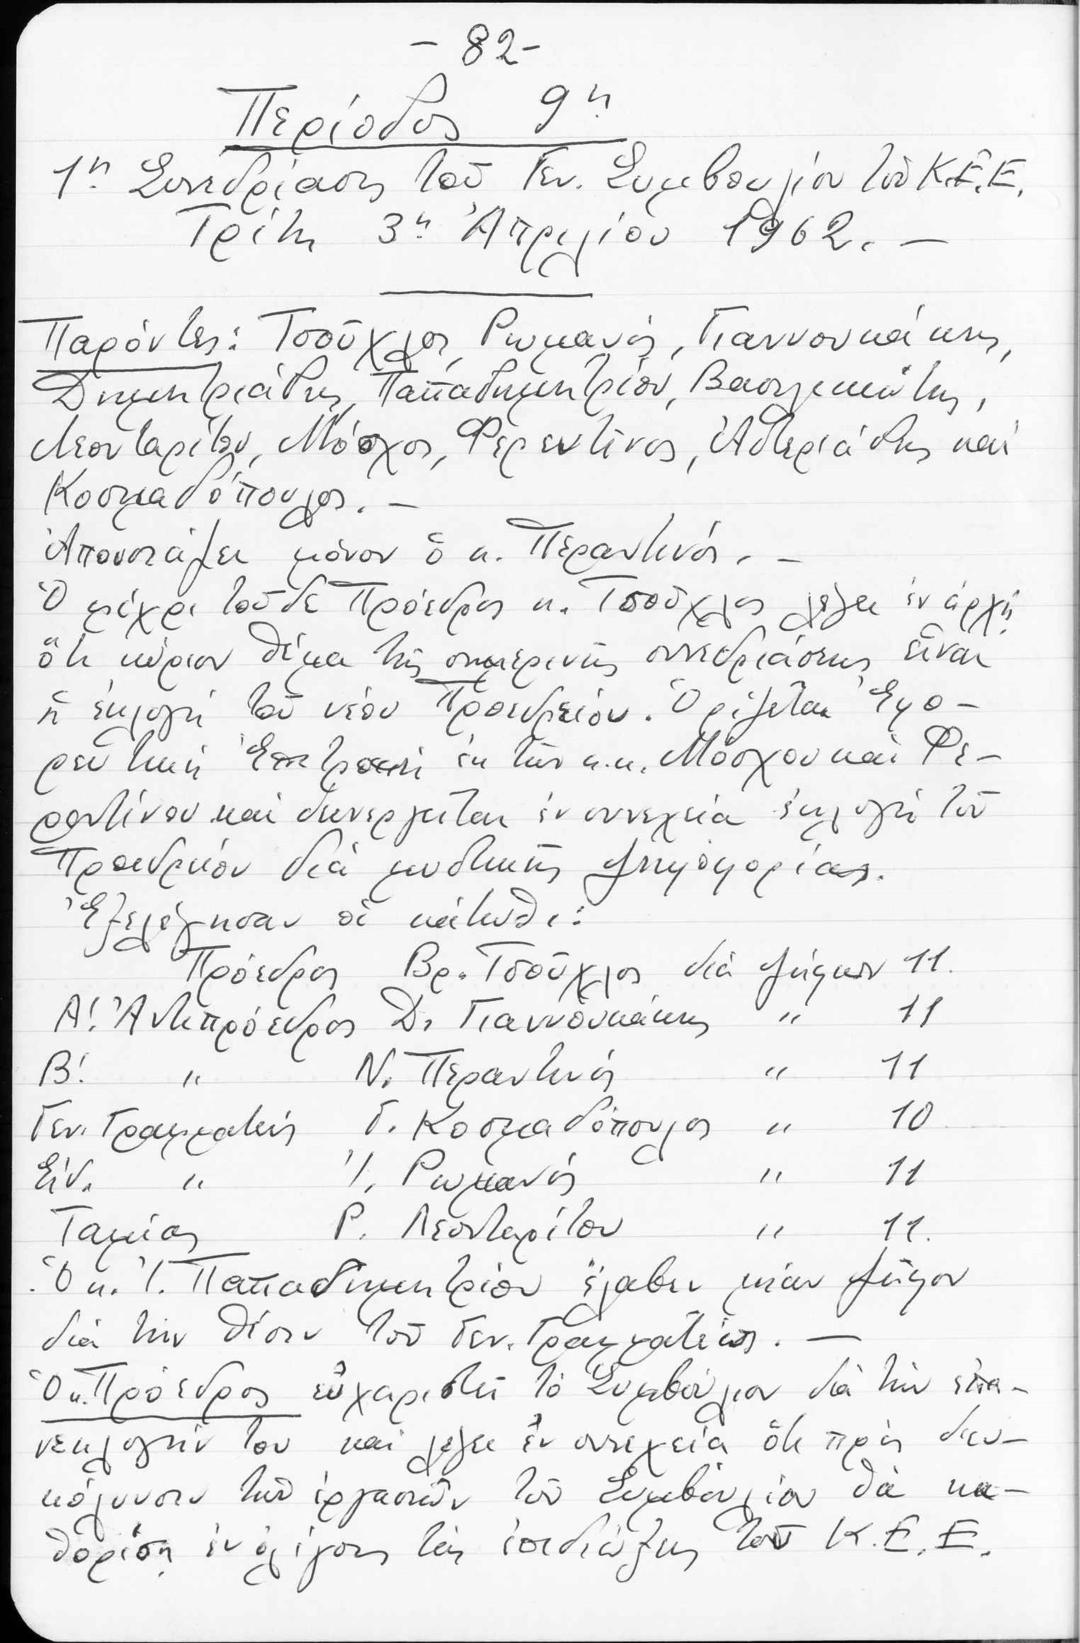 - 82 -
Περίοδος 9η
1η Συνεδρίασις τοῦ Γεν. Συμβουλίου τοῦ Κ.Ε.Ε.
Τρίτη 3η Ἀπριλίου 1962. —
Παρόντες: Τσοῦχλος, Ρωμανός, Γιαννουκάκης,
Δημητριάδης, Παπαδημητρίου, Βασιλειώτης,
Λεονταρίτου, Μόσχος, Φερεντῖνος, Ἀστεριάδης καί
Κοσμαδόπουλος. —
Ἀπουσιάζει μόνον ὁ κ. Περαντινός. —
Ὁ μέχρι τοῦδε Πρόεδρος κ. Τσοῦχλος λέγει ἐν ἀρχῇ
ὅτι κύριον θέμα τῆς σημερινῆς συνεδριάσεως εἶναι
ἡ ἐκλογή τοῦ νέου Προεδρείου. Ὁρίζεται Ἐφο-
ρευτική Ἐπιτροπή ἐκ τῶν κ.κ. Μόσχου καί Φε-
ρεντίνου καί διενεργεῖται ἐν συνεχείᾳ ἐκλογή τοῦ
Προεδρείου διά μυστικῆς ψηφοφορίας.
Ἐξελέγησαν οἱ κάτωθι:
Πρόεδρος Βρ. Τσοῦχλος διά ψήφων 11.
Α! Ἀντιπρόεδρος Δ. Γιαννουκάκης " 11
Β! " Ν. Περαντινός " 11
Γεν. Γραμματεύς Γ. Κοσμαδόπουλος " 10
Εἰδ. " Ἰ. Ρωμανός " 11
Ταμίας Ρ. Λεονταρίτου " 11.
Ὁ κ. Ἰ. Παπαδημητρίου ἔλαβεν μίαν ψῆφον
διά τήν θέσιν τοῦ Γεν. Γραμματέως. —
Ὁ κ. Πρόεδρος εὐχαριστεῖ τό Συμβούλιον διά τήν ἐπα-
νεκλογήν του καί λέγει ἐν συνεχείᾳ ὅτι πρός διευ-
κόλυνσιν τῶν ἐργασιῶν τοῦ Συμβουλίου θά κα-
θορίσῃ ἐν ὀλίγοις τάς ἐπιδιώξεις τοῦ Κ.Ε.Ε.